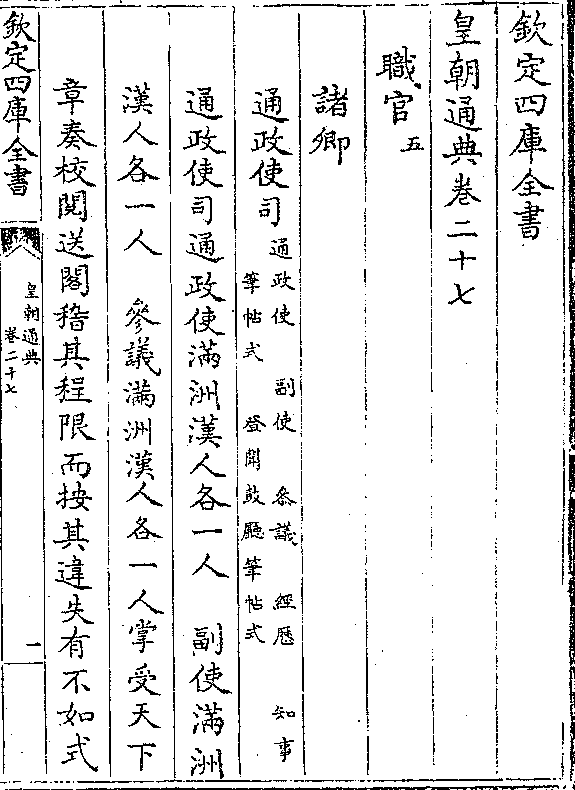 欽定四庫全書
皇朝通典卷二十七
職官五
諸卿
通政使司通政使 副使 參議 經歷 知事
筆帖式 登聞鼓廳筆帖式
通政使司通政使滿洲漢人各一人 副使滿洲
漢人各一人 參議滿洲漢人各一人掌受天下
章奏校閱送閣稽其程限而按其違失有不如式
欽定四庫全書
皇朝通典
卷二十七
一